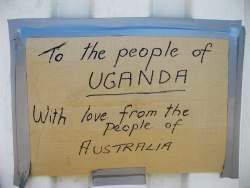 To the people of
UGANDA
With love from the
people of
AUSTRALIA